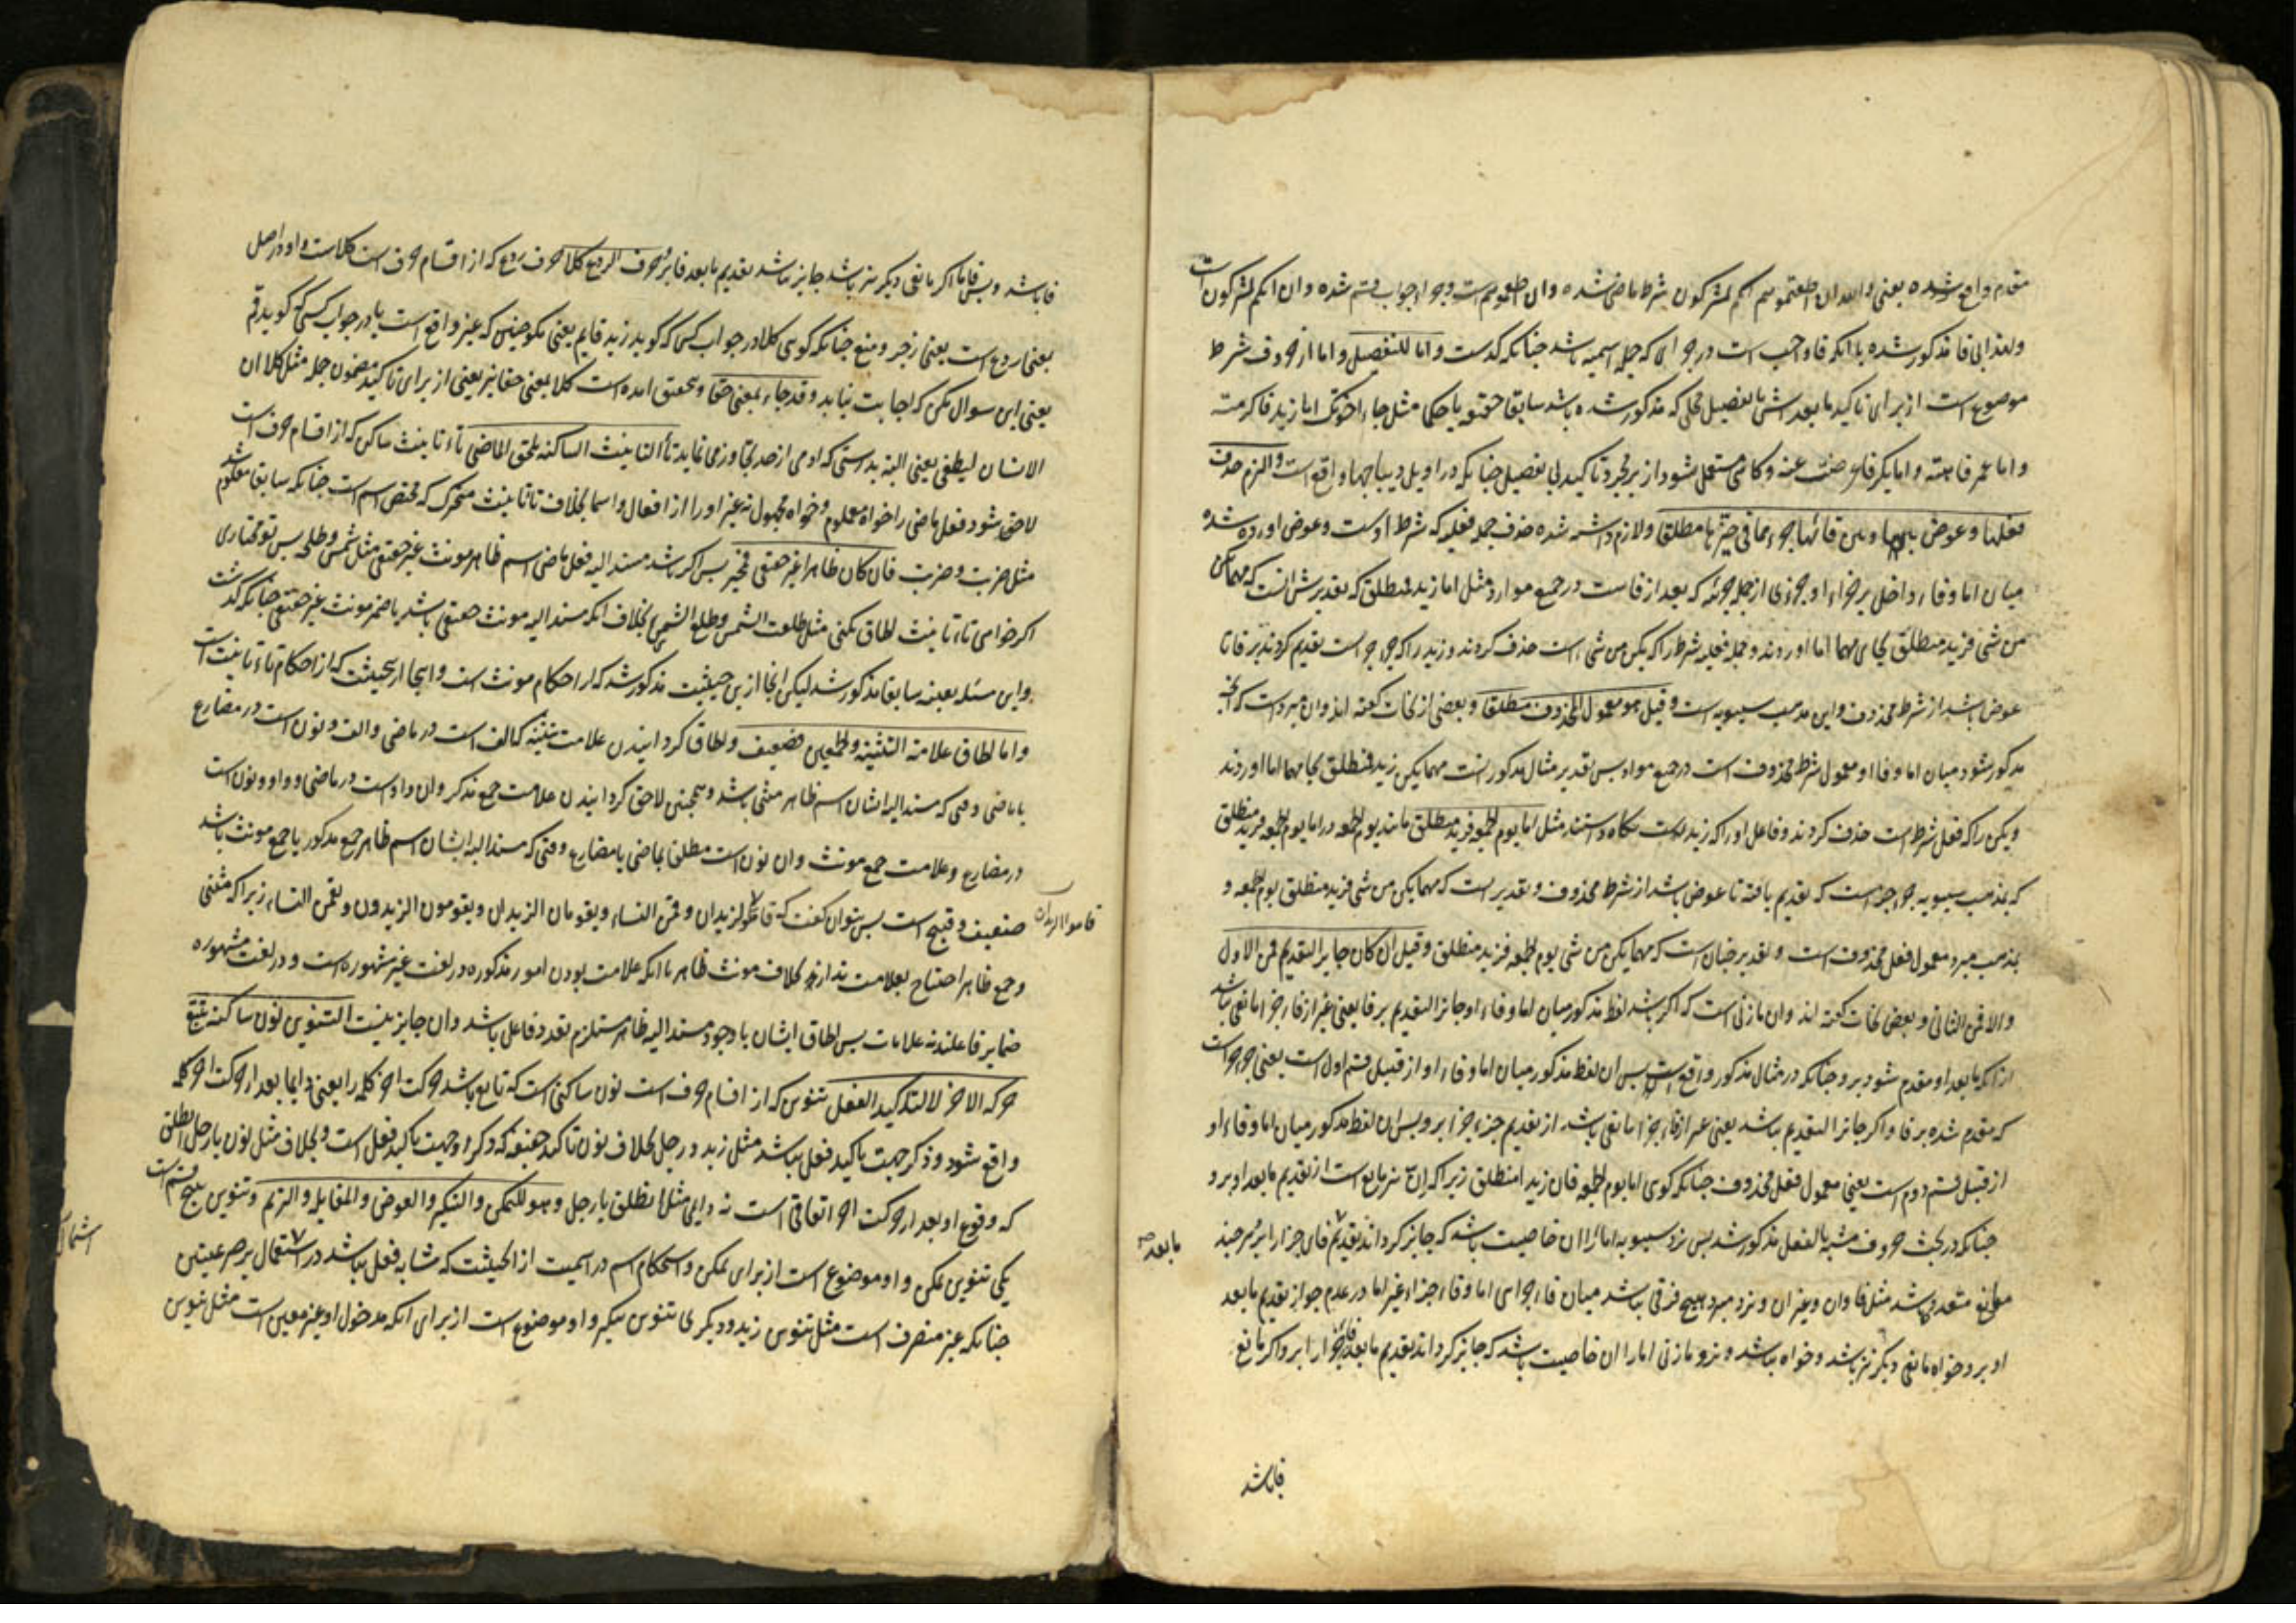 مقدم واقع شده یعنی والله ان اطعتموهم انکم لمشرکون شرط ماضی شده وان اطعتموهم است وجواب او جواب قسم شده وان انکم لمشرکون است
ولهذا بی فا مذکور شده با انکه فا واجب است در جوابی که جمله اسمیه باشد چنانکه گذشت واما للتفصیل واما از حروف شرط
موضوع است از برای تاکید ما بعدش یا تفصیل مجملی که مذکور شده باشد سابقا حقیقه یا حکما مثل جاء اخوتک اما زید فاکرمته
واما عمر فاهنته واما بکر فاعرضت عنه وگاهی مستعمل شود از برای مجرد تاکید بی تفصیل چنانکه در اوایل دیباچها واقع است والتزم حذف
فعلها وعوض بینها وبین فائها جزء مما فی حیزها مطلقا ولازم داشته شده حذف جمله فعلیه که شرط اوست وعوض اورده شده
میان اما وفاء داخل بر جزاء او جزوی از جمله جزائیه که بعد از فاست در جمیع موارد مثل اما زید فمنطلق که تقدیرش انست که مهما یکن
من شیء فزید منطلق بجای مهما اما اوردند وجمله فعلیه شرط را که یکن من شیء است حذف کردند وزید را که جزو جزاست تقدیم کردند بر فا تا
عوض باشد از شرط محذوف واین مذهب سیبویه است وقیل هو معمول المحذوف مطلقا وبعضی از نحات گفته اند وان مبرد است که انچه
مذکور شود میان اما وفا او معمول شرط محذوف است در جمیع مواد پس تقدیر مثال مذکور انست مهما یکن زید فمنطلق بجای مهما اما اوردند
ویکن را که فعل شرط است حذف کردند وفاعل او را که زید است نگاه داشتند مثل اما یوم الجمعه فزید منطلق مانند یوم الجمعه در اما یوم الجمعه فزید منطلق
که بمذهب سیبویه جزو جزاست که تقدیم یافته تا عوض باشد از شرط محذوف وتقدیر است که مهما یکن من شیء فزید منطلق یوم الجمعه و
بمذهب مبرد معمول فعل محذوف است وتقدیر چنان است که مهما یکن من شیء یوم الجمعه فزید منطلق وقیل ان کان جایز التقدیم فمن الاول
والا فمن الثانی وبعض نحات گفته اند وان مازنی است که اگر باشد لفظ مذکور میان اما وفاء او جائز التقدیم بر فا یعنی غیر از فاء جزا مانعی نباشد
از انکه ما بعد او مقدم شود برو چنانکه در مثال مذکور واقع است پس ان لفظ مذکور میان اما وفاء او از قبیل قسم اول است یعنی جزو جزاست
که مقدم شده بر فا واگر جائز التقدیم نباشد یعنی غیر از فاء جزا مانعی باشد از تقدیم جزء جزا برو پس ان لفظ مذکور میان اما وفاء او
از قبیل قسم دوم است یعنی معمول فعل محذوف چنانکه گوئی اما یوم الجمعه فان زیدا منطلق زیرا که ان نیز مانع است از تقدیم ما بعد او برو
چنانکه در بحث حروف مشبه بالفعل مذکور شد پس نزد سیبویه اما را ان خاصیت باشد که جایز گرداند تقدیم فای جزا را برو هر چند
ما بعد
موانع متعدد باشد مثل فا وان وغیر ان ونزد مبرد هیچ فرقی نباشد میان فاء جوابی اما وفاء جزاء غیر اما در عدم جواز تقدیم ما بعد
او برو خواه مانعی دیگر نیز باشد وخواه نباشد ونزد مازنی اما را ان خاصیت باشد که جایز گرداند تقدیم ما بعد فاء جزا را برو اگر مانع
فا باشد
فا باشد وبس فاما اگر مانعی دیگر نیز باشد جایز نباشد تقدیم ما بعد فا برو حرف الردع کلا حرف ردع که از اقسام حرف است کلاست واو در اصل
بمعنی ردع است یعنی زجر ومنع چنانکه گوئی کلا در جواب کسی که گوید زید قایم یعنی مگو چنین که غیر واقع است یا در جواب کسی که گوید قم
یعنی این سوال مکن که اجابت نیابد وقد جاء بمعنی حقا وبتحقیق امده است کلا بمعنی حقا نیز یعنی از برای تاکید مضمون جمله مثل کلا ان
الانسان لیطغی یعنی البته بدرستی که ادمی از حد تجاوز می نماید تاء التانیث الساکنه یلحق الماضی تاء تانیث ساکن که از اقسام حرف است
لاحق شود فعل ماضی را خواه معلوم وخواه مجهول نه غیر او را از افعال واسما بخلاف تاء تانیث متحرک که مختص اسم است چنانکه سابقا معلوم شد
مثل ضربت وضربت فان کان ظاهرا غیر حقیقی فمخیر پس اگر باشد مسند الیه فعل ماضی اسم ظاهر مونث غیر حقیقی مثل شمس وظلمه پس تو مختاری
اگر خواهی تاء تانیث الحاق بکنی مثل طلعت الشمس وطلع الشمس بخلاف انکه مسند الیه مونث حقیقی باشد یا ضمیر مونث غیر حقیقی چنانکه گذشت
واین مسئله بعینه سابقا مذکور شد لیکن انجا ازین حیثیت مذکور شد که از احکام مونث است واینجا از حیثیت که از احکام تاء تانیث است
واما الحاق علامه التثنیه والجمعین فضعیف والحاق گردانیدن علامت تثنیه که الف است در ماضی والف ونون است در مضارع
با ماضی وقتی که مسند الیه ایشان اسم ظاهر مثنی باشد وهمچنین لاحق گردانیدن علامت جمع مذکر وان واو است در ماضی وواو ونون است
در مضارع وعلامت جمع مونث وان نون است مطلقا بماضی یا مضارع وقتی که مسند الیه ایشان اسم ظاهر جمع مذکور یا جمع مونث باشد
ضعیف وقبیح است پس نتوان گفت که قاما الزیدان وقمن النساء ویقومان الزیدان ویقومون الزیدون ویقمن النساء زیرا که مثنی
قاموا الزیدون
وجمع ظاهر احتیاج بعلامت ندارند بخلاف مونث ظاهر با انکه علامت بودن امور مذکوره در لغت غیر مشهوره است ودر لغت مشهوره
ضمایر فاعلند نه علامات پس الحاق ایشان با وجود مسند الیه ظاهر مستلزم تعدد فاعل باشد وان جایز نیست التنوین نون ساکنه تتبع
حرکه الاخر لا لتاکید الفعل تنوین که از اقسام حرف است نون ساکنی است که تابع باشد حرکت اخر کلمه را یعنی دایما بعد از حرکت اخر کلمه
واقع شود وذکر جهت تاکید فعل نباشد مثل زید ورجل بخلاف نون تاکید خفیفه که ذکر او جهت تاکید فعل است وبخلاف مثل نون یا رجل انطلق
که وقوع او بعد از حرکت اخر اتفاقی است نه دایمی مثل انطلق یا رجل وهو للتمکن والتنکیر والعوض والمقابله والترنم وتنوین پنج قسم است
یکی تنوین تمکن واو موضوع است از برای تمکن واستحکام اسم در اسمیت از انحیثیت که مشابه فعل نباشد در
چنانکه غیر منصرف است مثل تنوین زید ودیگری تنوین تنکیر واو موضوع است از برای انکه مدخول او غیر معین است مثل تنوین